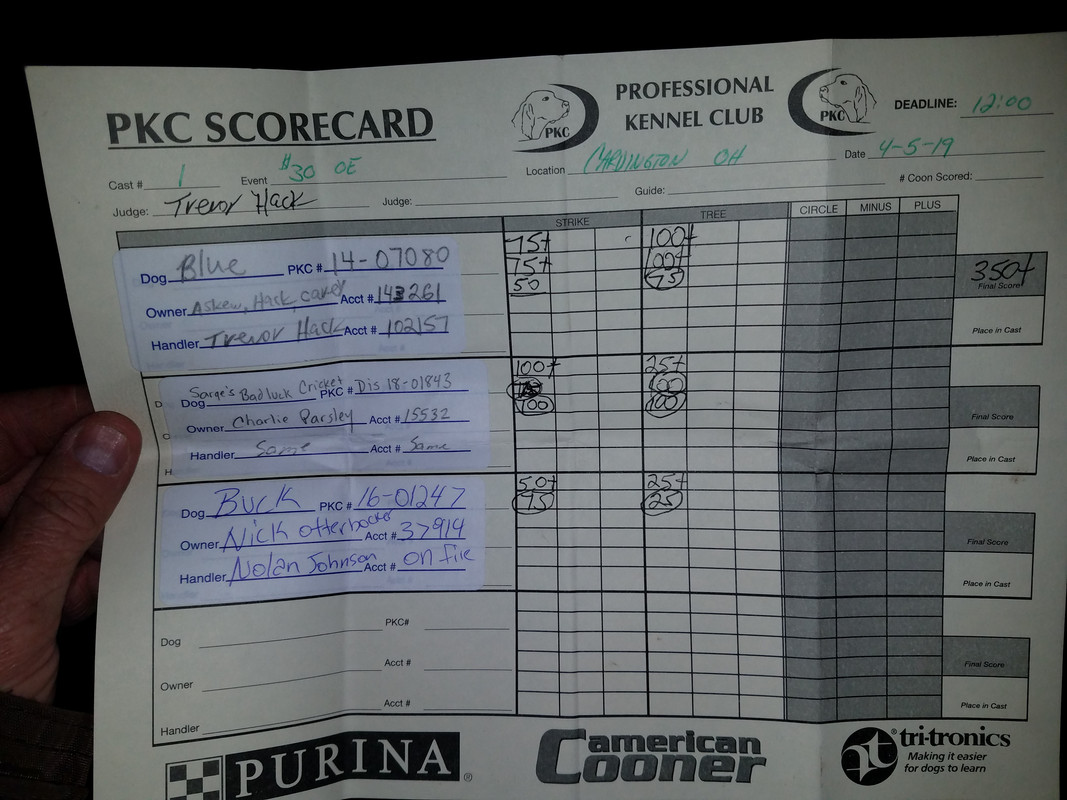 PKC SCORECARD
PKC
PROFESSIONAL
KENNEL CLUB
PKC
DEADLINE: 12:00
Cast # 1 Event $30 OE Location CARDINGTON OH Date 4-5-19
Judge: Trevor Hack Judge: Guide: # Coon Scored:
STRIKE TREE CIRCLE MINUS PLUS
Dog Blue PKC # 14-07080
Owner Askew, Hack, carey Acct # 143261
Handler Trevor Hack Acct # 102157
75+ 100+
75+ 100+
50 75
350+
Final Score
Place in Cast
Sarge's Badluck Cricket
Dog PKC # Dis 18-01843
Owner Charlie Parsley Acct # 15532
Handler Same Acct # Same
100+ 25+
100
100 100
Final Score
Place in Cast
Dog Buck PKC # 16-01247
Owner Nick Otterbacker Acct # 37914
Handler Nolan Johnson Acct # on file
50+ 25+
75 25
Final Score
Place in Cast
Dog PKC#
Owner Acct #
Handler Acct #
Final Score
Place in Cast
PURINA®
american
Cooner
tri-tronics
Making it easier
for dogs to learn